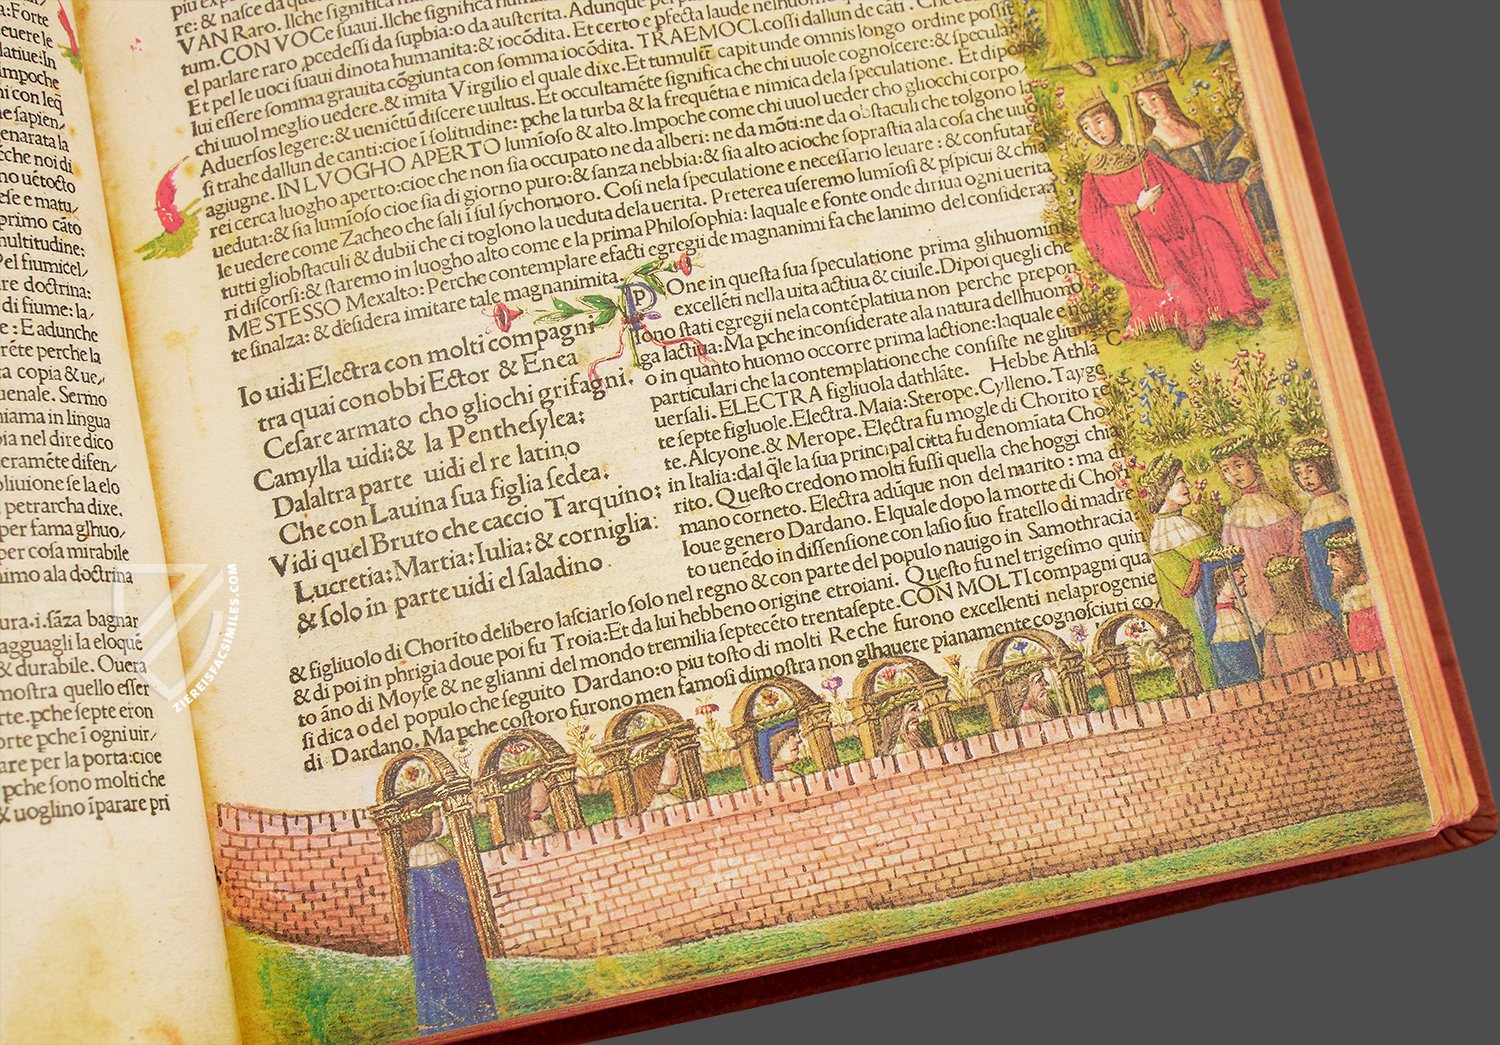 :Forte
euere le
latiue:In
impoche
ni con leq
he sapien,
enarata la
che noi di
no uétocto
ese e matu,
primo cāto
multitudine:
Pel fiumicel,
are doctrina:
di fiume: la,
e: E adunche
rēte perche la
ta copia & ue,
uenale. Sermo
hiama in lingua
bia nel dire dico
eraméte difen,
bliuione se la elo
petrarcha dixe.
per fama glhuo,
per cosa mirabile
nimo ala doctrina
ura.i.sāza bagnar
agguagli la eloqué
& durabile. Ouera
mostra quello esser
rte.pche septe eron
orte pche i ogni uir,
are per la porta:cioe
pche sono molti che
& uoglino iparare pri
VAN Raro. Ilche significa
tum. CON VOCe suaui. Ilche significa
el parlare raro, pcedessi da supbia: o da austerita. Adunque
Et pel le uoci suaui dinota humanita: & iocōdita. Et certo e pfecta laude
lui essere somma grauita cōgiunta con somma iocōdita. TRAEMOCI cossi dallun de cāti. Che
chi uuol meglio uedere. & imita Virgilio el quale dixe. Et tumultū capit unde omnis longo ordine possit
Aduersos legere: & ueniétū discere uultus. Et occultaméte significa che chi uuole cognoscere: & specular
si trahe dallun de canti: cioe i solitudine: pche la turba & la frequētia e nimica dela speculatione. Et dipo
agiugne. IN LVOGHO APERTO lumioso & alto. Impoche come chi uuol ueder cho gliocchi corpo,
rei cerca luogho aperto: cioe che non sia occupato ne da alberi: ne da mōti: ne da obstaculi che tolgono la
ueduta: & sia lumioso cioe sia di giorno puro: & sanza nebbia: & sia alto acioche soprastia ala cosa che uuo
le uedere come Zacheo che sali i sul sychomoro. Cosi nela speculatione e necessario leuare: & confutare
tutti gliobstaculi & dubii che ci toglono la ueduta dela uerita. Preterea useremo lumiosi & pspicui & chia
ri discorsi: & staremo in luogho alto come e la prima Philosophia: laquale e fonte onde diriua ogni uerita
ME STESSO Mexalto: Perche contemplare efacti egregii de magnanimi fa che lanimo del consideran
te sinalza: & desidera imitare tale magnanimita
Io uidi Electra con molti compagni
tra quai conobbi Ector & Enea
Cesare armato cho gliochi grifagni.
Camylla uidi: & la Penthesylea:
Dalaltra parte uidi el re latino
Che con Lauina sua figlia sedea:
Vidi quel Bruto che caccio Tarquino:
Lucretia: Martia: Iulia: & corniglia:
& solo in parte uidi el saladino
POne in questa sua speculatione prima glihuomini
excelléti nella uita actiua & ciuile. Dipoi quegli che
sono stati egregii nela contéplatiua non perche prepon
ga lactiua: Ma pche inconsiderate ala natura dellhuomo
o in quanto huomo occorre prima lactione: laquale e ne
particulari che la contemplatione che consiste ne gliuni
uersali. ELECTRA figliuola dathlāte. Hebbe Athla
te septe figluole. Electra. Maia: Sterope. Cylleno. Tayge
te. Alcyone. & Merope. Electra fu mogle di Chorito re
in Italia: dal qle la sua principal citta fu denomiata Cho
rito. Questo credono molti fussi quella che hoggi chia
mano corneto. Electra adūque non del marito: ma di
Ioue genero Dardano. Elquale dopo la morte di Cho
to uenédo in dissensione con Iasio suo fratello di madre
& figliuolo di Chorito delibero lasciarlo solo nel regno & con parte del populo nauigo in Samothracia:
& di poi in phrigia doue poi fu Troia: Et da lui hebbeno origine etroiani. Questo fu nel trigesimo quin
to āno di Moyse & ne glianni del mondo tremilia septecéto trentasepte. CON MOLTI compagni qua
si dica o del populo che seguito Dardano: o piu tosto di molti Re che furono excellenti nela progenie
di Dardano. Ma pche costoro furono men famosi dimostra non glhauere pianamente cognosciuti co,
ZIEREISFACSIMILES.COM